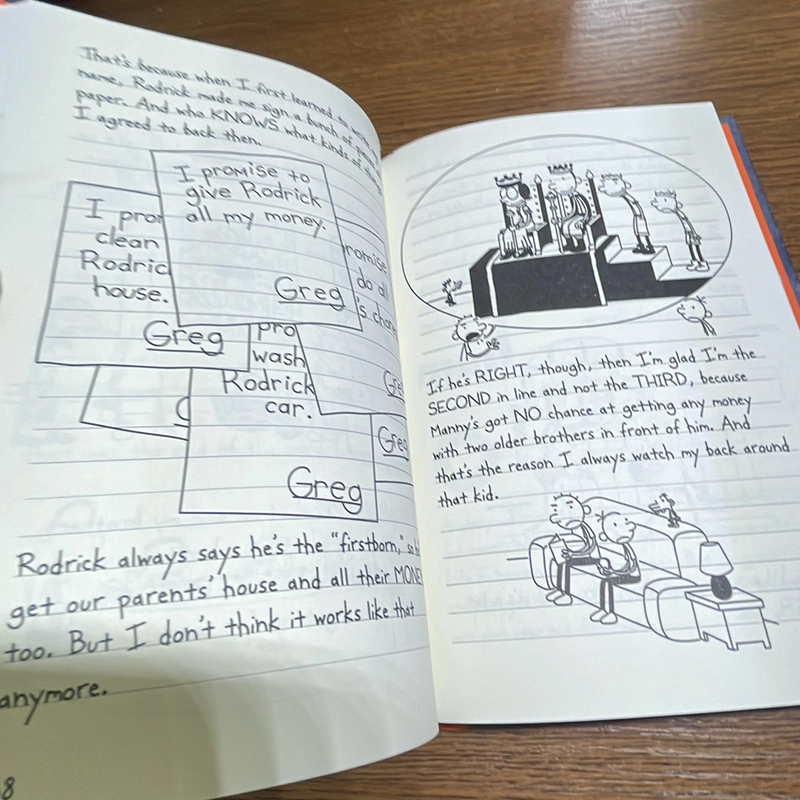 That's because when I first learned to
name, Rodrick made me sign a bunch of
paper. And who KNOWS what kinds of
I agreed to back then.
I promise to
give Rodrick
all my money.
Greg
I pro
clean
Rodric
house.
Greg
romise
do al
's chor
Gre
pro
wash
Rodrick
car.
Greg
Gre
Rodrick always says he's the "firstborn,"
get our parents' house and all their MONE
too. But I don't think it works like that
anymore.
8
If he's RIGHT, though, then I'm glad I'm the
SECOND in line and not the THIRD, because
Manny's got NO chance at getting any money
with two older brothers in front of him. And
that's the reason I always watch my back around
that kid.